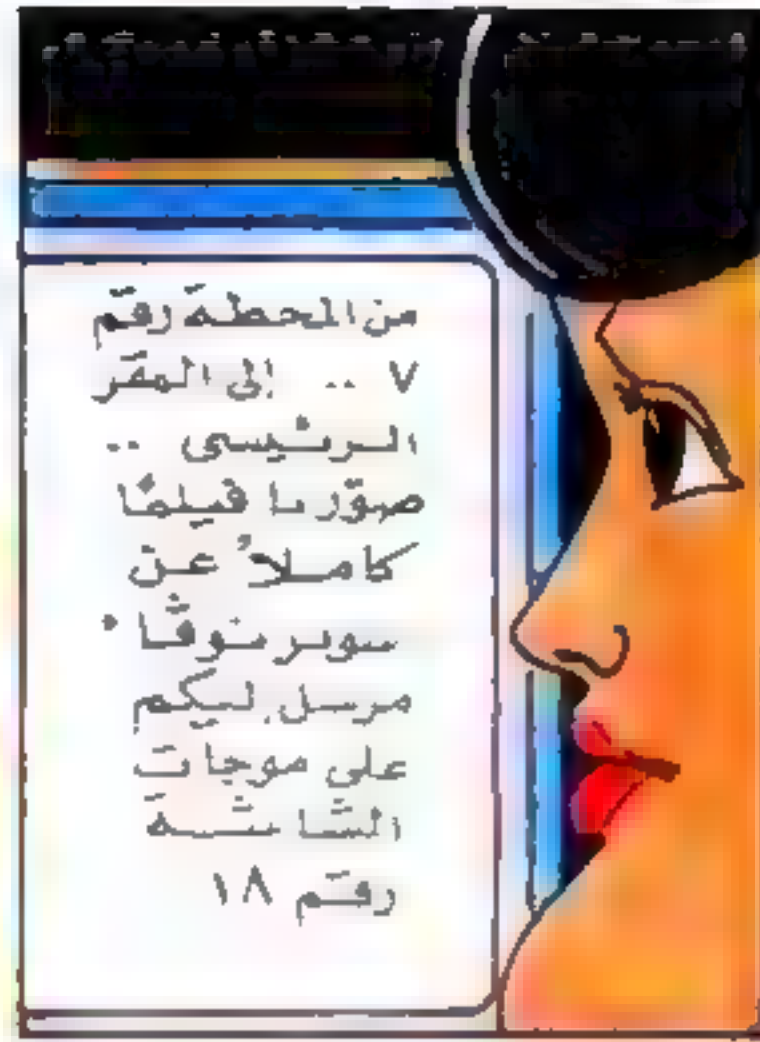 من المحطة رقم
٧ .. إلى المقر
الرئيسى ..
صوّرنا فيلمًا
كاملاً عن
سوبر نوڤا
مرسل إليكم
على موجات
الشاشة
رقم ١٨